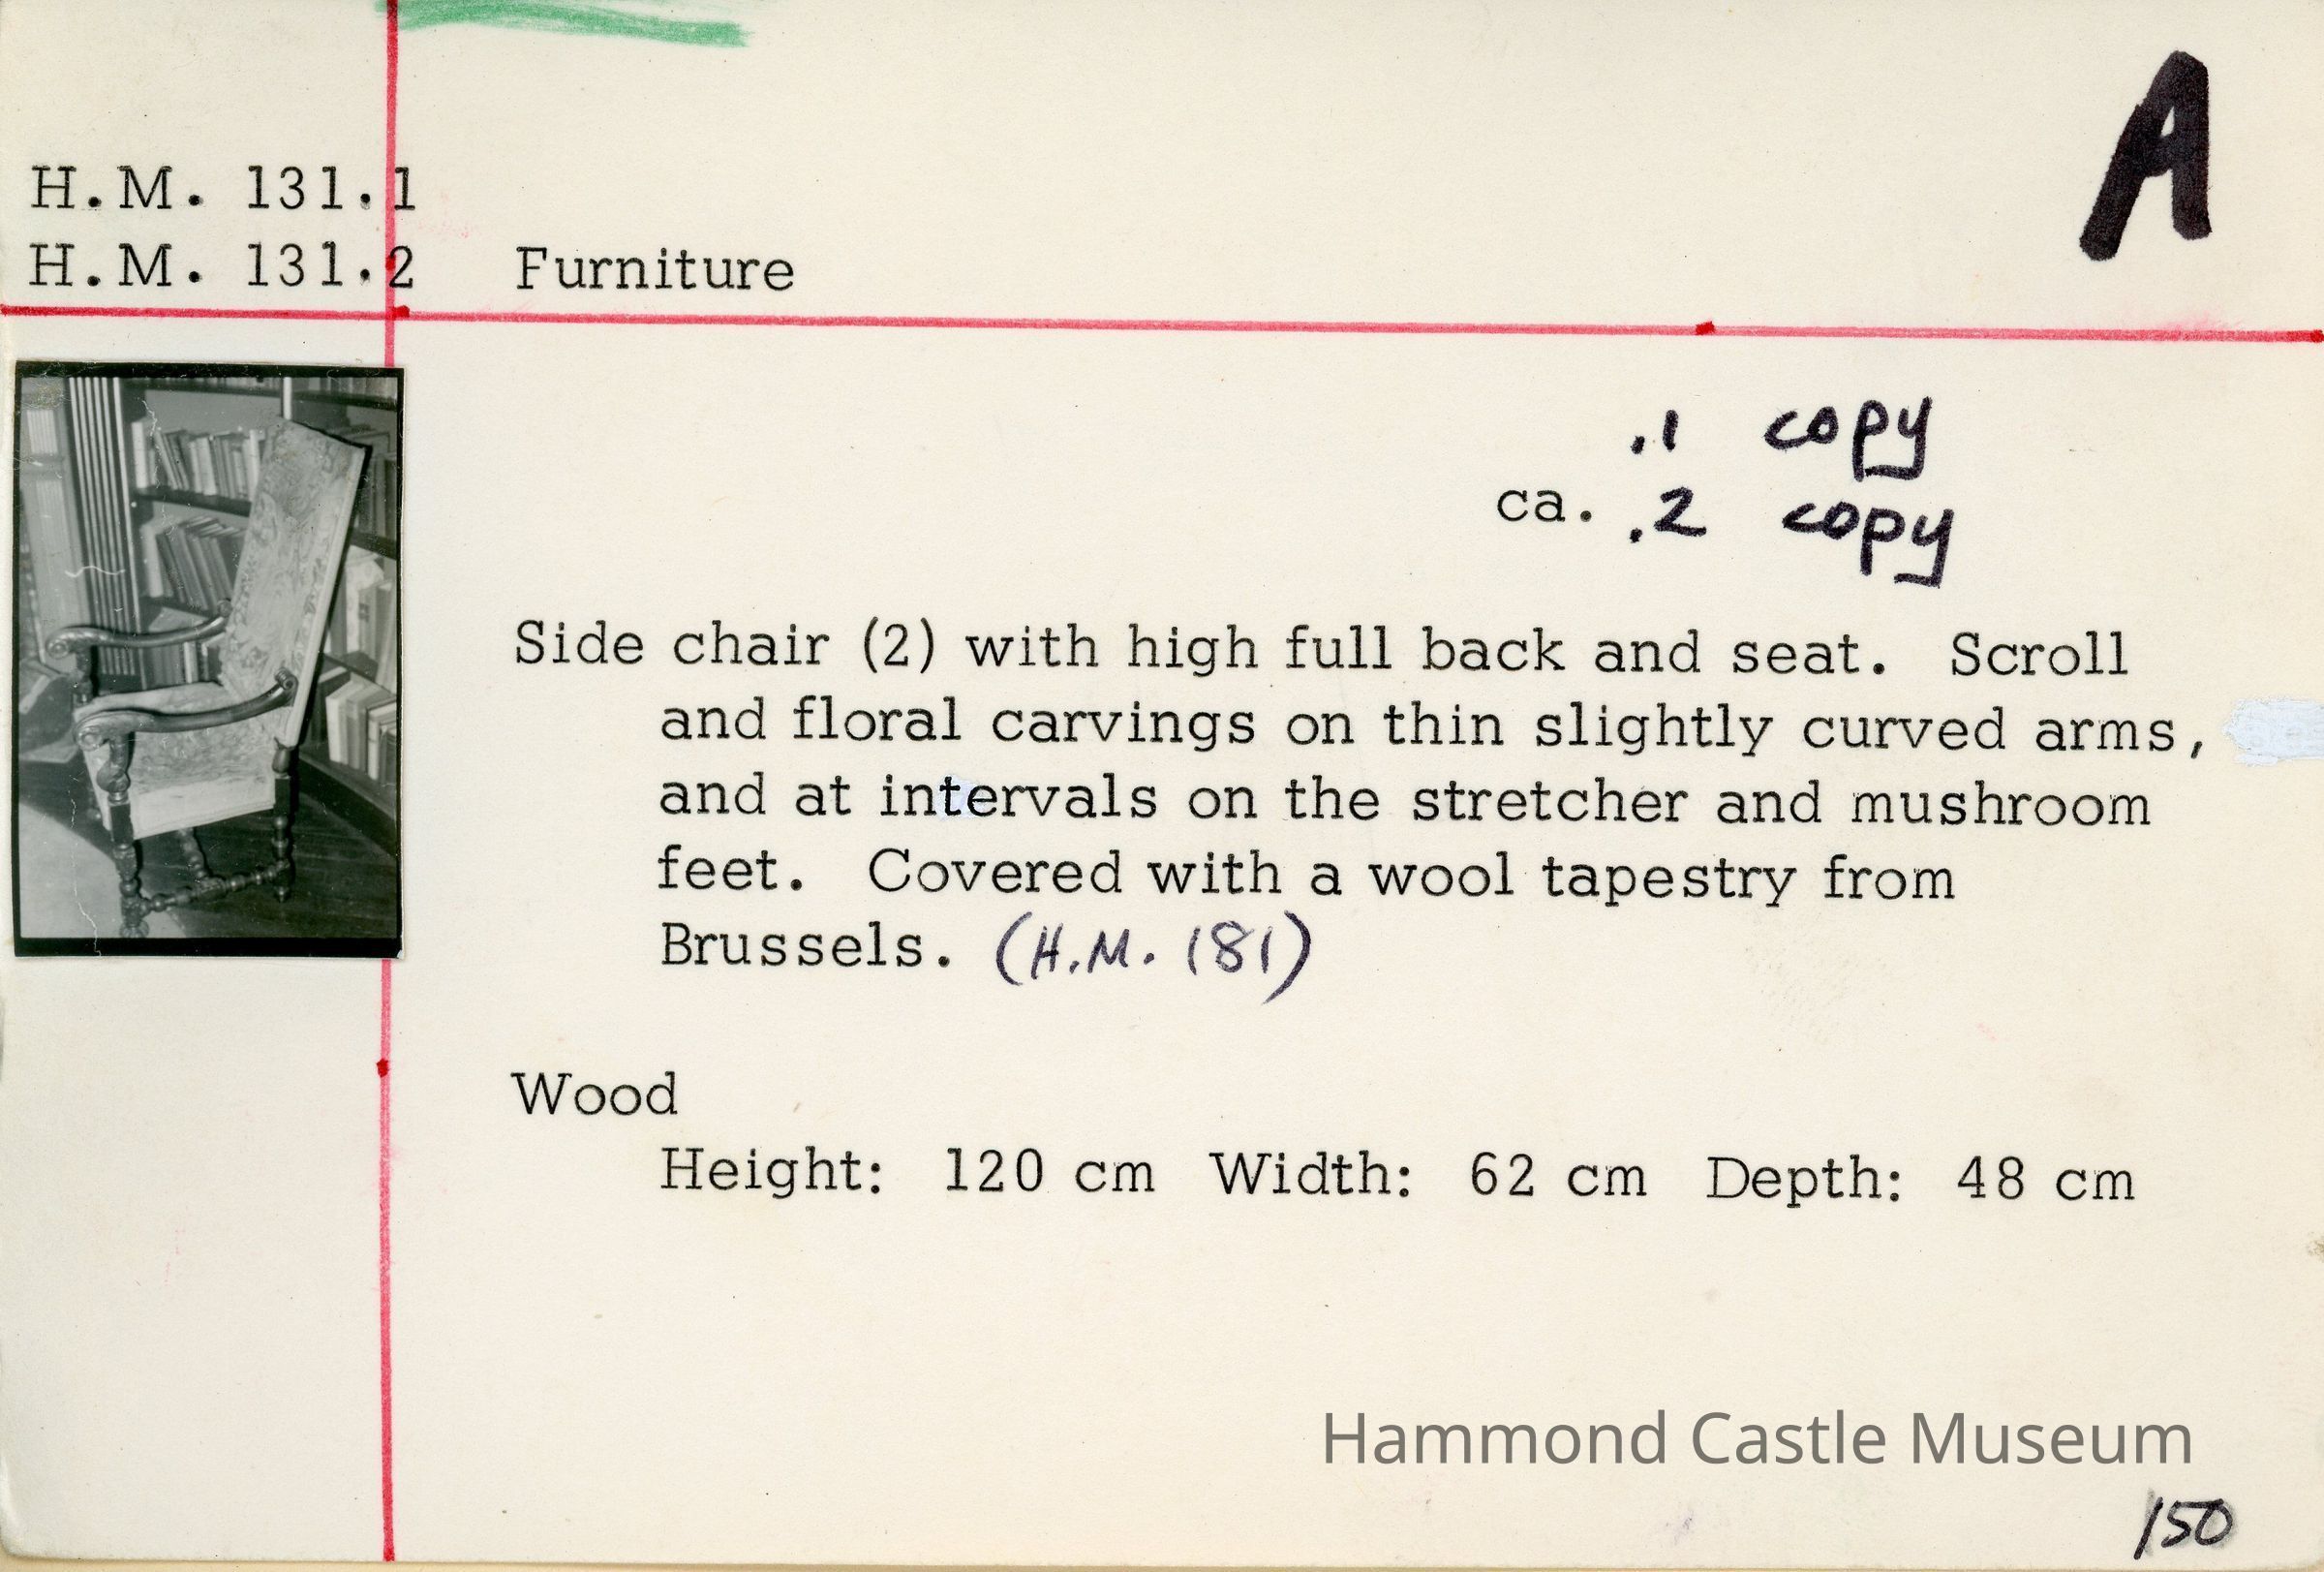 A
H.M. 131.1
H.M. 131.2 Furniture
.1 copy
ca. .2 copy
Side chair (2) with high full back and seat. Scroll
and floral carvings on thin slightly curved arms,
and at intervals on the stretcher and mushroom
feet. Covered with a wool tapestry from
Brussels. (H.M. 181)
Wood
Height: 120 cm Width: 62 cm Depth: 48 cm
Hammond Castle Museum
150